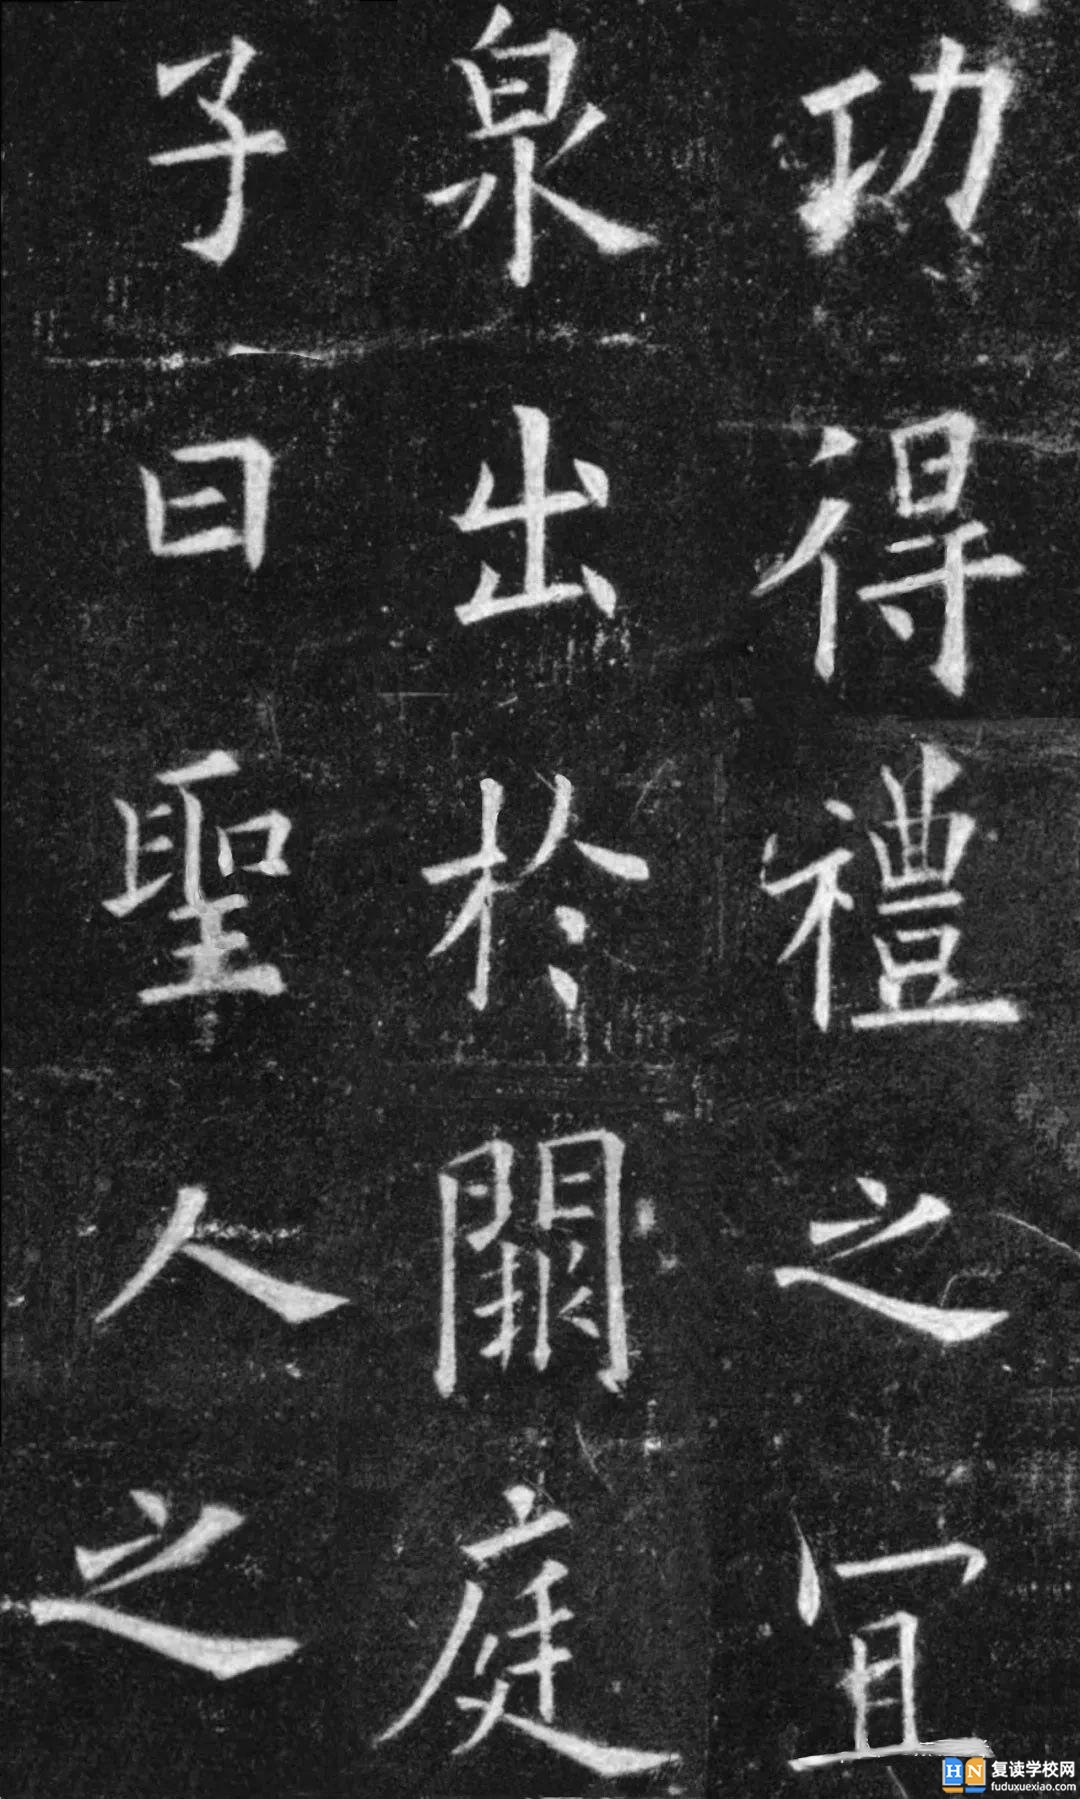 功得禮之宜
泉出於闕庭
子曰聖人之
HN 复读学校网
fuduxuexiao.com